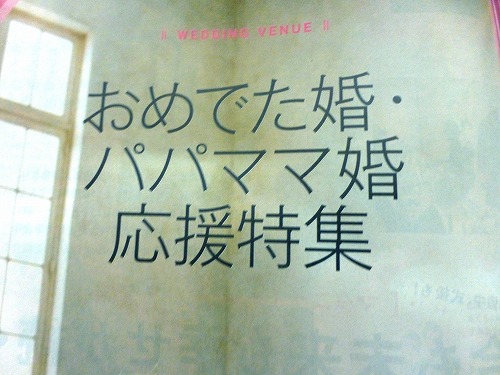 || WEDDING VENUE ||
おめでた婚・
パパママ婚
応援特集